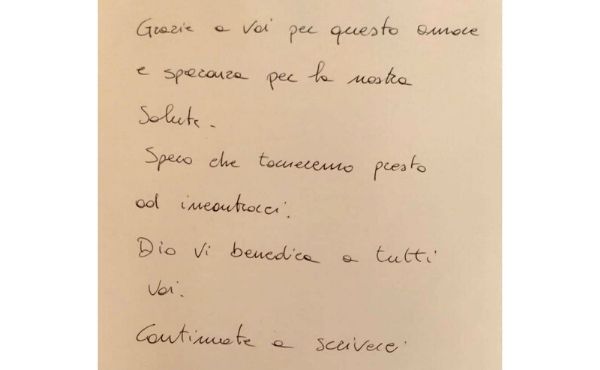 Grazie a Voi per questo amore
e speranza per la nostra
Salute.
Spero che torneremo presto
ad incontrarci.
Dio Vi benedica a tutti
Voi.
Continuate a scriverci